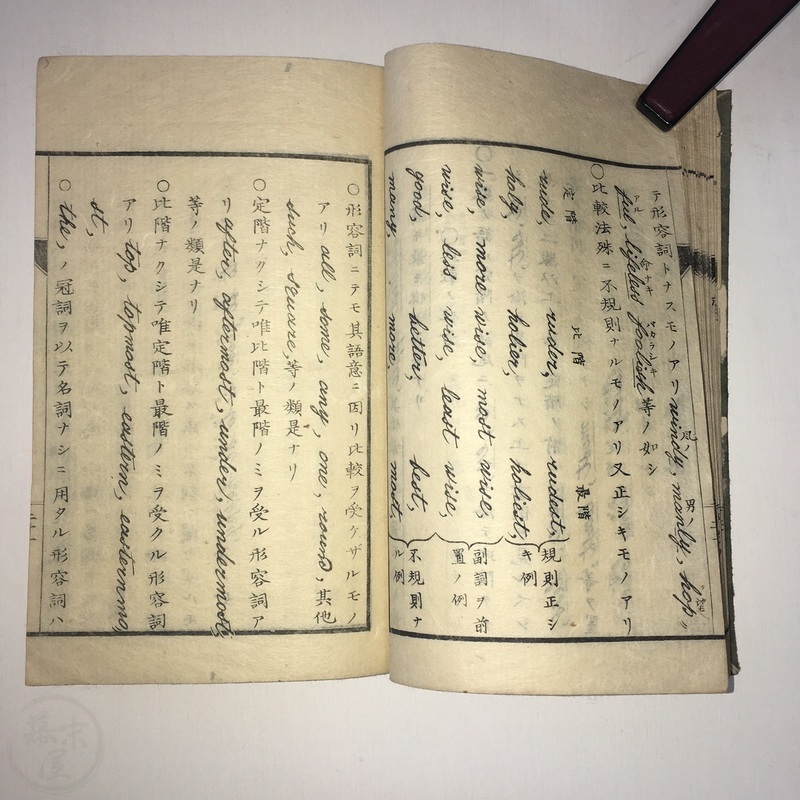 テ形容詞トナスモノアリ windy, manly, hop=
ful, lifeless foolish 等ノ如シ
○比較法殊ニ不規則ナルモノアリ又正シキモノアリ
定階 比階 最階
rude, ruder, rudest,
holy, holier, holiest, 規則正シキ例
wise, more wise, most wise,
wise, less wise, least wise, 副詞ヲ前置ノ例
good, better, best,
many, more, most, 不規則ナル例
○形容詞ニテモ其語意ニ因リ比較ヲ受ケザルモノ
アリ all, some, any, one, round, 其他
such, square, 等ノ類是ナリ
○定階ナクシテ唯比階ト最階ノミヲ受ル形容詞ア
リ after, aftermost, under, undermost,
等ノ類是ナリ
○比階ナクシテ唯定階ト最階ノミヲ受クル形容詞
アリ top, topmost, eastern, easternmo,
st,
○the, ノ冠詞ヲ以テ名詞ナシニ用タル形容詞ハ
幕末屋